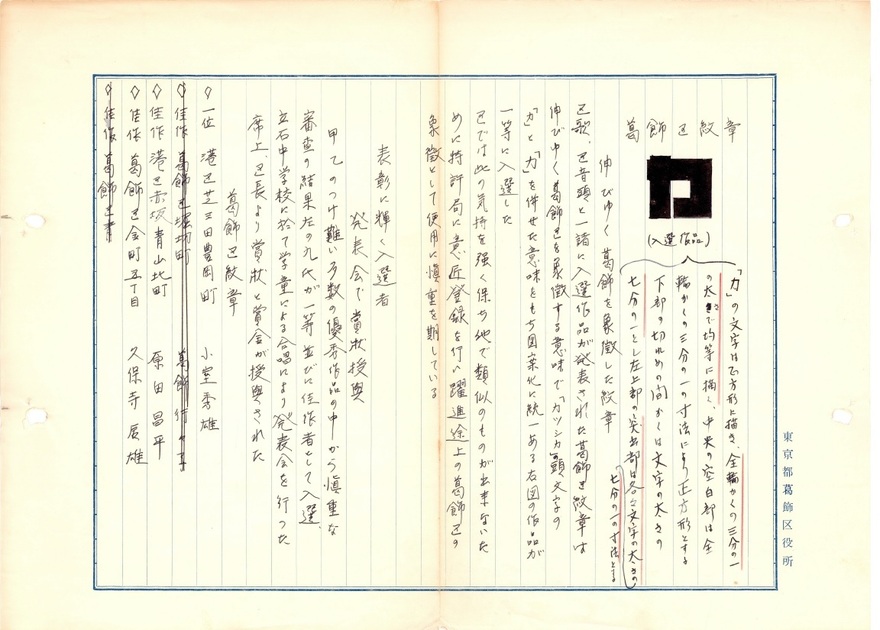 葛飾区紋章
(入選作品)
「カ」の文字は正方形に描き、全輪かくの三分の一
の太さで均等に描く、中央の空白部は全
輪かくの三分の一の寸法により正方形とする
下部の切れめの間かくは文字の太さの
七分の一とし左上部の突出部は各々文字の太さの
七分の一の寸法とする
伸びゆく葛飾を象徴した紋章
区歌、区音頭と一諸に入選作品が発表された葛飾区紋章は
伸びゆく葛飾区を象徴する意味で「カツシカ」の頭文字の
「カ」と「力」を併せた意味をもち図案化に統一ある右図の作品が
一等に入選した
区では此の気持を強く保ち他で類似のものが出来ないた
めに特許局に意匠登録を行い躍進途上の葛飾区の
象徴として使用に慎重を期している
表彰に輝く入選者
発表会で賞状授與
甲乙のつけ難い多数の優秀作品の中から慎重な
審査の結果左の九氏が一等並びに佳作者として入選、
立石中学校に於て学童による合唱により発表会を行つた
席上、区長より賞状と賞金が授與された
葛飾区紋章
◇一位 港区芝三田豊岡町 小室秀雄
◇佳作 葛飾区堀切町 葛飾
◇佳作 港区赤坂青山北町 原田昌平
◇佳作 葛飾区金町五丁目 久保寺辰雄
◇佳作 葛飾区青
東京都葛飾区役所